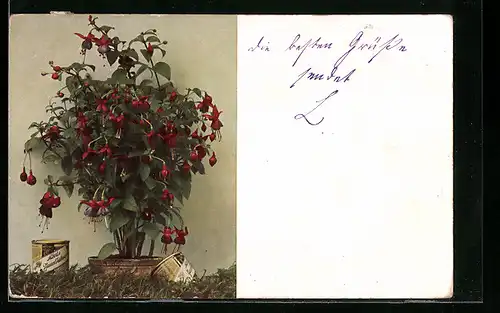 die besten Grüße
sendet
L